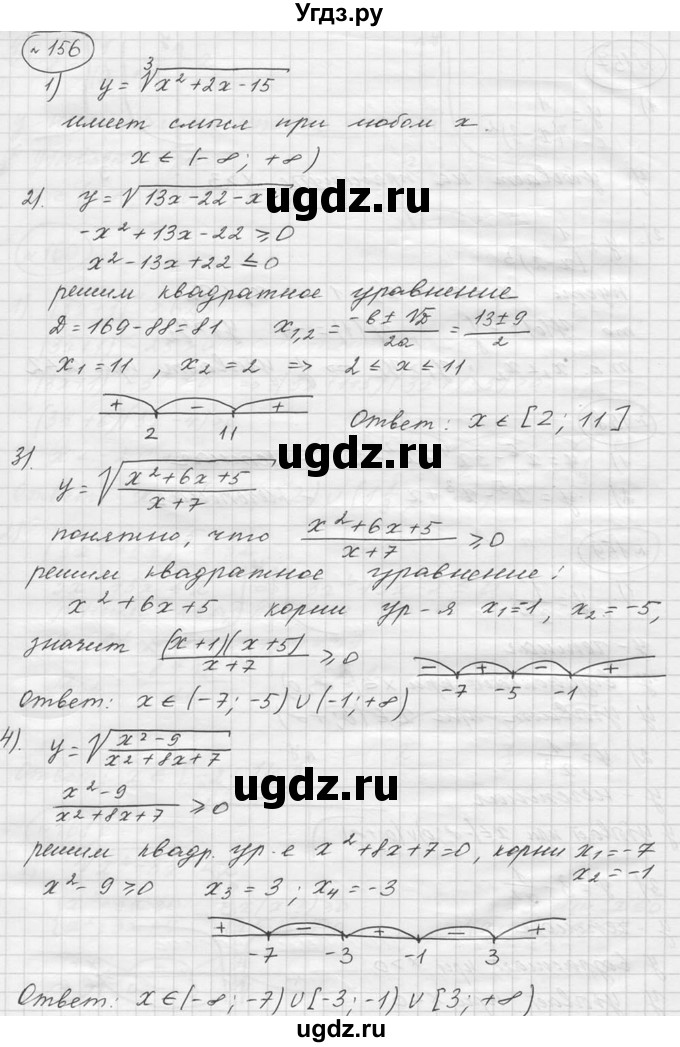 Угдз.ру
№156
1) y = ∛(x² + 2x - 15)
имеет смысл при любом x.
x ∈ (-∞; +∞)
ugdz.ru
2). y = √(13x - 22 - x
-x² + 13x - 22 ≥ 0
x² - 13x + 22 ≤ 0
решим квадратное уравнение
D = 169 - 88 = 81 x₁,₂ = (-в ± √D)/2a = (13 ± 9)/2
x₁ = 11, x₂ = 2 => 2 ≤ x ≤ 11
+ - +
2 11
Ответ: x ∈ [2; 11]
ugdz.ru
3). y = √((x² + 6x + 5)/(x + 7))
понятно, что (x² + 6x + 5)/(x + 7) ≥ 0
решим квадратное уравнение:
x² + 6x + 5 корни ур-я x₁=1, x₂ = -5,
значит ((x + 1)(x + 5))/(x + 7) ≥ 0
ugdz.ru
- + - +
-7 -5 -1
Ответ: x ∈ (-7; -5) ∪ (-1; +∞)
4). y = √((x² - 9)/(x² + 8x + 7))
(x² - 9)/(x² + 8x + 7) ≥ 0
ugdz.ru
решим квадр. ур-е x² + 8x + 7 = 0, корни x₁ = -7
x₂ = -1
x² - 9 ≥ 0 x₃ = 3; x₄ = -3
+ - + - +
-7 -3 -1 3
Ответ: x ∈ (-∞; -7) ∪ [-3; -1) ∪ [3; +∞)
ugdz.ru